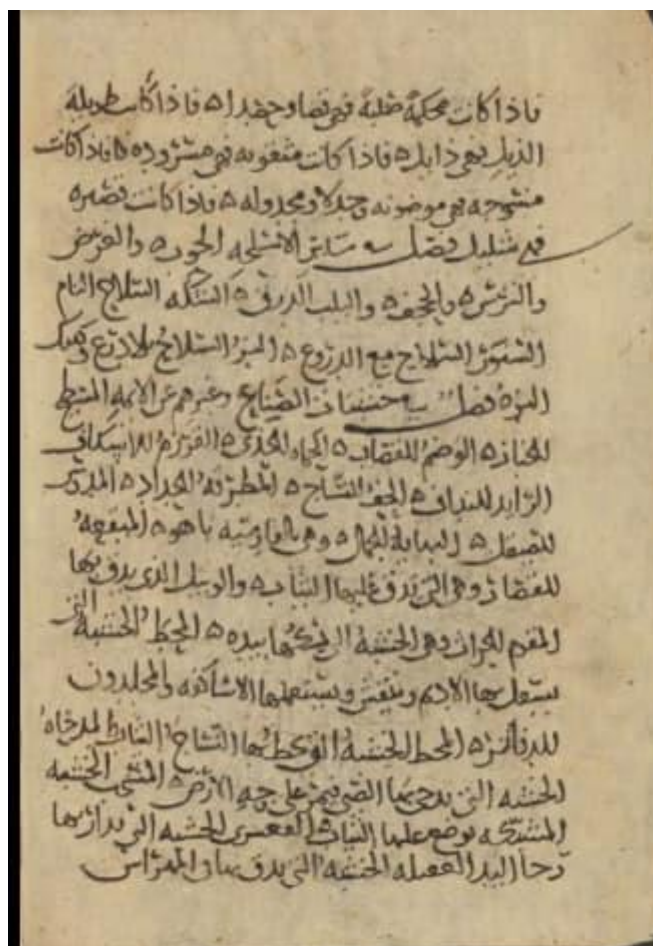 فاذا كانت محكمة صلبة فهى قضا وحصدا ه فاذا كانت طويلة
الذيل فهى ذايل ه فاذا كانت مثقوبه فهى مسروده ه فاذا كانت
منسوجه فهى موضونه وجدلا ومجدوله ه فاذا كانت قصيره
فهى شليل فصل فى سائر الاسلحة الجوب ه والفرض
والترس ه والجحف ه واليلب الدرق ه الشكه السلاح التام
السنور السلاح مع الدروع ه البز السلاح بلا درع وكذلك
البزه فصل فى خشبات الصناع وغيرهم عن الايمه المسطح
للخباز ه الوضم للقصاب ه الجباه للحذى ه الفرزم للاسكاف
للنداف ه الحف للنساج ه المطرقه للحداد ه المدوك
للصيقل ه للجمال ه وهى بالفارسية باهو ه الميقعه
للقصار وهى التى يدق عليها الثياب ه والوبيل الذى يدق بها
المقوم للحراث وهى الخشبة التى يمسكها بيده ه المحط الخشبة التى
يصقل بها الادم وينقش ويستعملها الاساكفه والمجلدون
للدفاتر ه المخط الخشبة التى يخط بها النساج الثياب المدحاه
الخشبه التى يدحى بها الصبى فتمر على وجه الارض ه المشجب الخشبه
المشتبكه توضع عليها الثياب القعسرى الخشبه التى يدار بها
رحا اليد الخشبه التى يدق بها فى المهراس